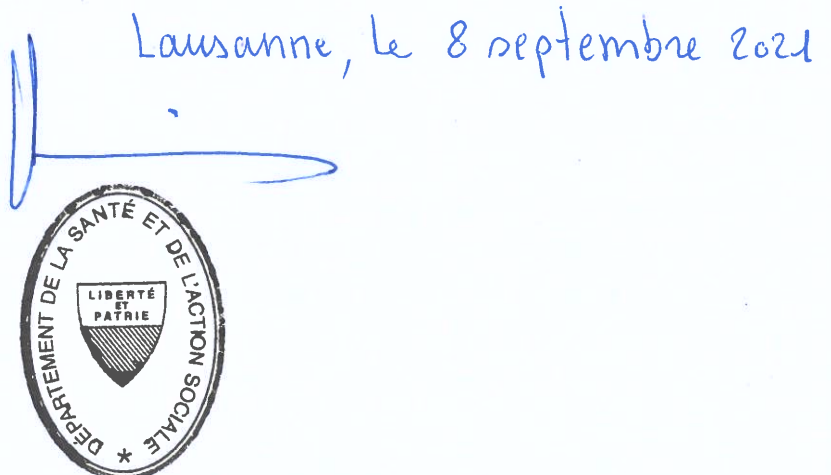 Lausanne, le 8 septembre 2021
DÉPARTEMENT DE LA SANTÉ ET DE L'ACTION SOCIALE *
LIBERTÉ
ET
PATRIE